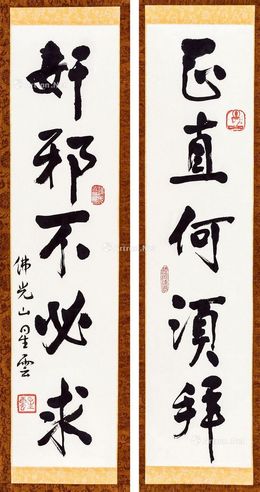 正直何須拜
奸邪不必求
佛光山星雲